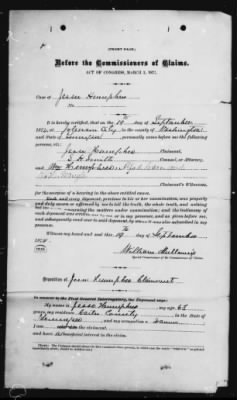 [FRONT PAGE.]
Before the Commissioners of Claims.
ACT OF CONGRESS, MARCH 3, 1871.
Case of Jesse Humphres
No.
It is hereby certified, that on the 19 day of September
at Johnson City, in the county of Washington
State of Tennessee, personally came before me the following persons, viz:
Jesse Humphres Claimant.
S. H. Smith Counsel, or Attorney,
Claimant's Witnesses,
for the purpose of a hearing in the above entitled cause.
Each and every deponent, previous to his or her examination, was properly
and duly sworn or affirmed by me to tell the truth, the whole truth, and nothing
but the truth, concerning the matters under examination; and the testimony
of each deponent was written out by me, or in my presence, and as given before me,
and subsequently read over to said deponent, by whom it was also signed in my presence.
Witness my hand and seal this 19 day of September
Deposition of Jesse Humphres Claimant
In answer to the First General Interrogatory, the Deponent says:
My name is Jesse Humphres, my age 63
years, my residence Carter County, in the State of
Tennessee, and my occupation a Farmer
I am the claimant,
and have a beneficial interest in the claim.